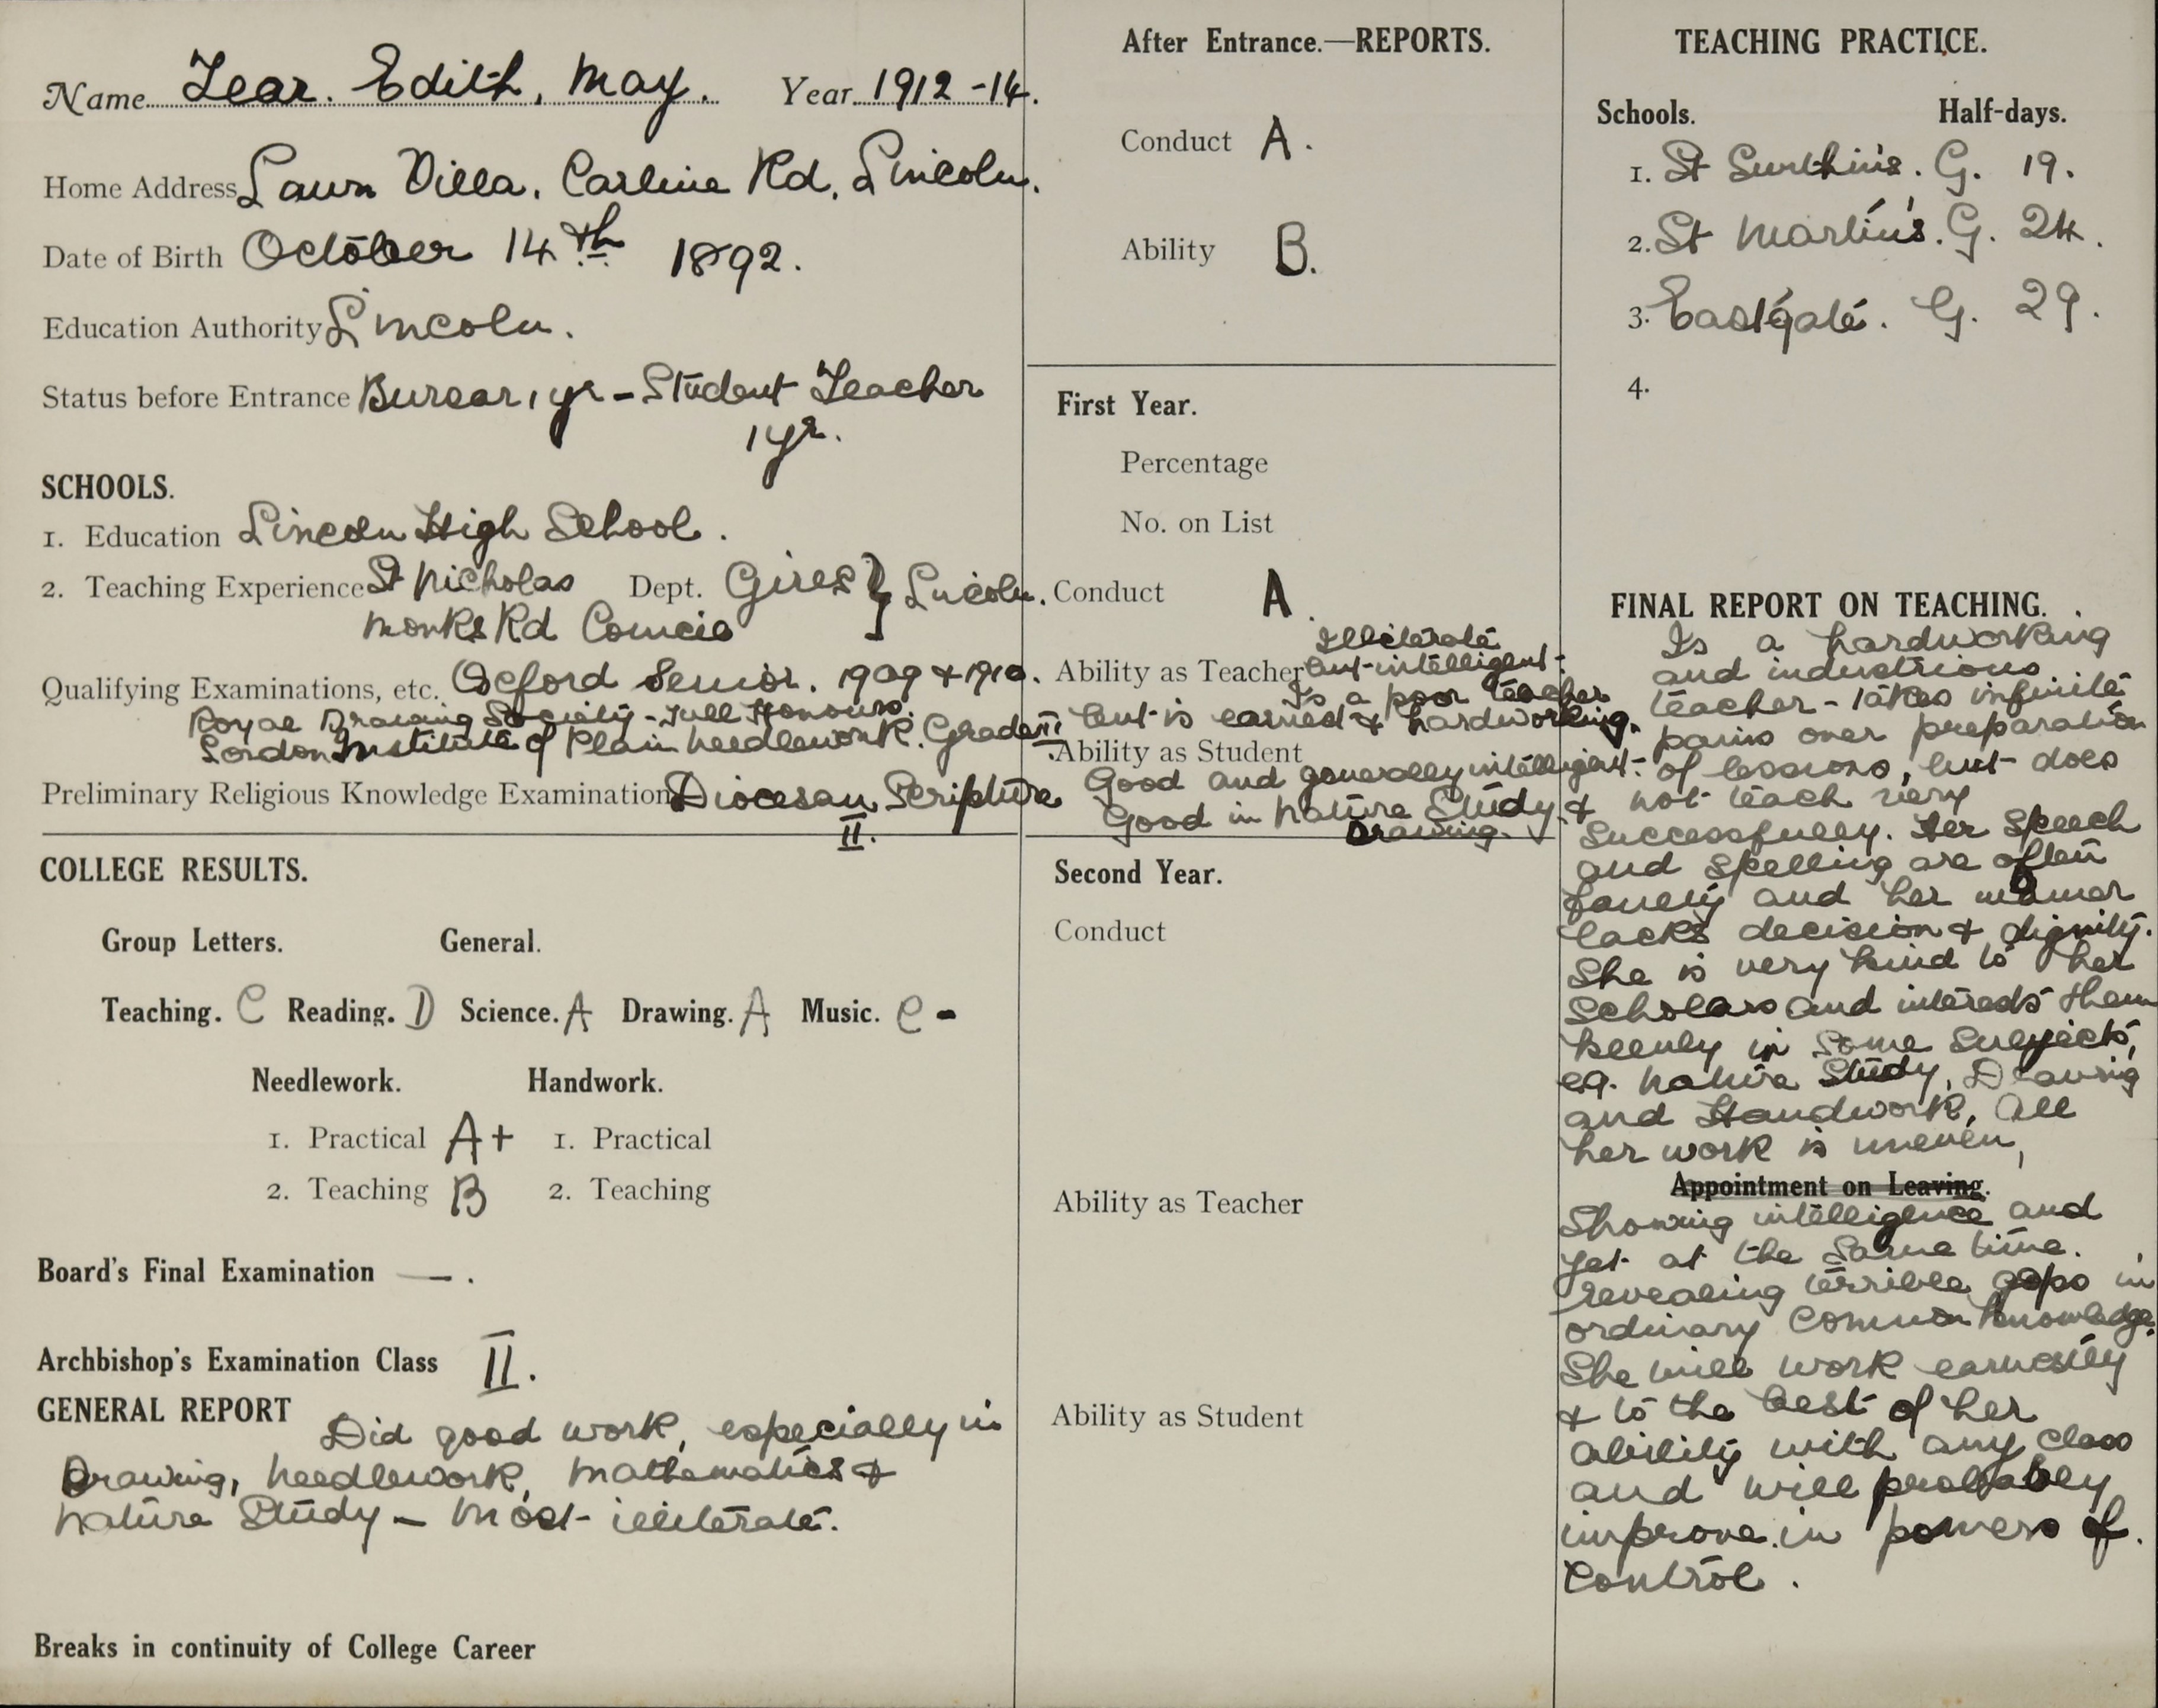 Name Tear. Edith, May. Year 1912-14.
Home Address Lawn Villa. Carline Rd. Lincoln.
Date of Birth October 14th 1892.
Education Authority Lincoln.
Status before Entrance Bursar 1 yr - Student Teacher
1 yr.
SCHOOLS.
1. Education Lincoln High School.
2. Teaching Experience St Nicholas Dept. Girls } Lincoln.
Monks Rd Council
Qualifying Examinations, etc. Oxford Senior. 1909 & 1910.
Royal Drawing Society - Full Honours.
London Institute of Plain Needlework. Grade III
Preliminary Religious Knowledge Examination Diocesan Scripture
II.
COLLEGE RESULTS.
Group Letters. General.
Teaching. C Reading. D Science. A Drawing. A Music. C -
Needlework. Handwork.
1. Practical A+ 1. Practical
2. Teaching B 2. Teaching
Board's Final Examination — .
Archbishop's Examination Class II.
GENERAL REPORT
Did good work, especially in
Drawing, Needlework, Mathematics &
Nature Study - Most illiterate.
Breaks in continuity of College Career
After Entrance.—REPORTS.
Conduct A.
Ability B.
First Year.
Percentage
No. on List
Conduct A.
Illiterate
Ability as Teacher but intelligent.
Is a poor teacher
but is earnest & hardworking.
Ability as Student
Good and generally intelligent.
Good in Nature Study &
Drawing.
Second Year.
Conduct
Ability as Teacher
Ability as Student
TEACHING PRACTICE.
Schools. Half-days.
1. St Swithin's. G. 19.
2. St Martin's. G. 24.
3. Eastgate. G. 29.
4.
FINAL REPORT ON TEACHING.
Is a hardworking
and industrious
teacher - takes infinite
pains over preparation
of lessons, but does
not teach very
successfully. Her speech
and spelling are often
faulty and her manner
lacks decision & dignity.
She is very kind to her
scholars and interests them
keenly in some subjects,
eg. Nature Study, Drawing
and Handwork. All
her work is uneven,
Appointment on Leaving.
Showing intelligence and
yet at the same time.
revealing terrible gaps in
ordinary common knowledge.
She will work earnestly
& to the best of her
ability with any class
and will probably
improve in powers of
Control.